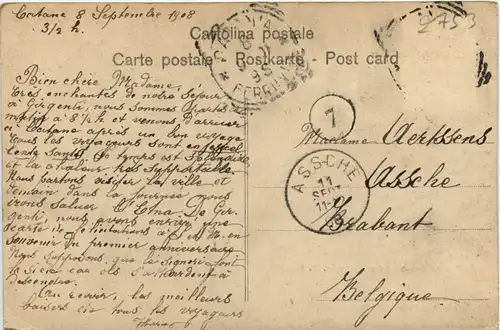 Catana 8 Septembre 1908
3/2 h.
Cartolina postale
Carte postale - Postkarte - Post card
Bien chère Madame,
Très enchantés de notre séjour
à Girgenti, nous sommes partis
matin à 8 1/2 h et venons d'arriver
à Catane après un bon voyage
Tous les voyageurs sont en
santé. Le temps est splendide
et la chaleur très supportable.
Nous partons visiter la ville et
demain dans la journée nous
irons saluer l'Etna. De Gir-
genti, nous avons envoyé une
carte de félicitations à M. en
souvenir du premier anniversaire
Nous supposons que le
la car ils s'
descendre.
Au revoir, les meilleurs
baisers de tous les voyageurs
2753
FERROVIA
7
Madame Aerssens
Assche
Brabant
Belgique.
ASSCHE
11
SEPT
11-